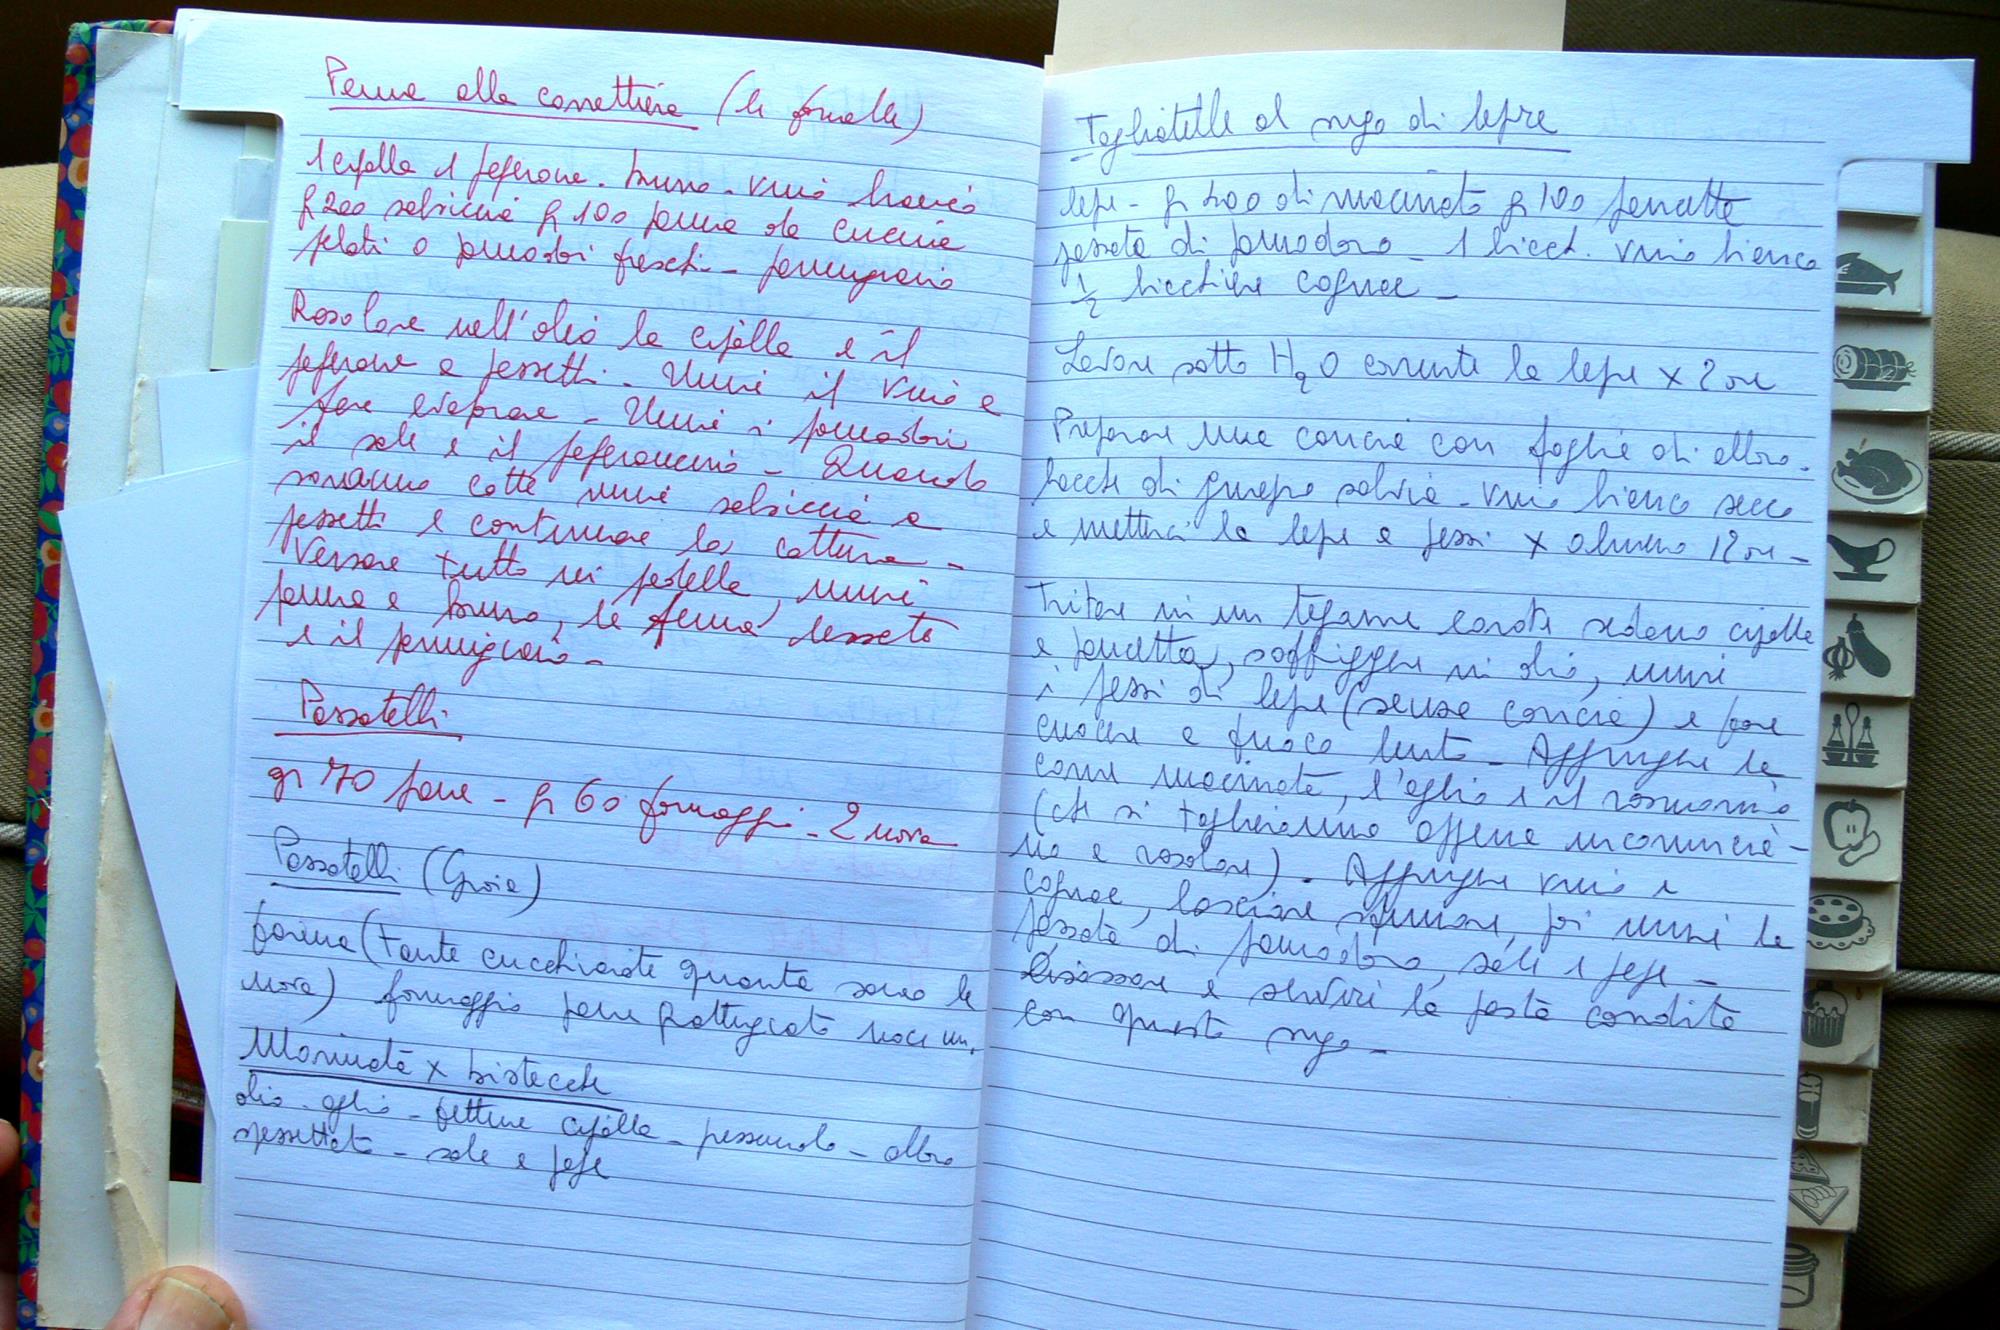 Penne alla carrettiera (la fornella)
1 cipolla 1 peperone - burro - vino bianco
g 200 salsiccia g 100 panna da cucina
pelati o pomodori freschi - parmigiano
Rosolare nell'olio la cipolla e il
peperone a pezzetti - Unire il vino e
fare evaporare - Unire i pomodori
il sale e il peperoncino - Quando
saranno cotte unire salsiccia a
pezzetti e continuare la cottura -
Versare tutto in padella, unire
panna e burro, le penne lessate
e il parmigiano -
Passatelli
gr 70 pane - g 60 formaggio - 2 uova
Passatelli (Gioia)
farina (tante cucchiaiate quante sono le
uova) formaggio pane grattugiato noce m.
Marinata x bistecche
olio - aglio - fettine cipolla - pezzando - alloro
spezzettato - sale e pepe
Tagliatelle al sugo di lepre
lepre - g 200 di macinato g 100 pancetta
passata di pomodoro - 1 bicch. vino bianco
1/2 bicchiere cognac -
Lavare sotto H2O corrente la lepre x 2 ore
Preparare una concia con foglie di alloro -
bacche di ginepro salvia - vino bianco secco
e metterci la lepre a pezzi x almeno 12 ore -
Tritare in un tegame carota sedano cipolla
e pancetta, soffriggere in olio, unire
i pezzi di lepre (senza concia) e fare
cuocere a fuoco lento - Aggiungere la
carne macinata, l'aglio e il rosmarino
(che si toglieranno appena incomincia-
no a rosolare) - Aggiungere vino e
cognac, lasciare sfumare, poi unire la
passata di pomodoro, sale e pepe -
Disossare e servire la pasta condita
con questo sugo -